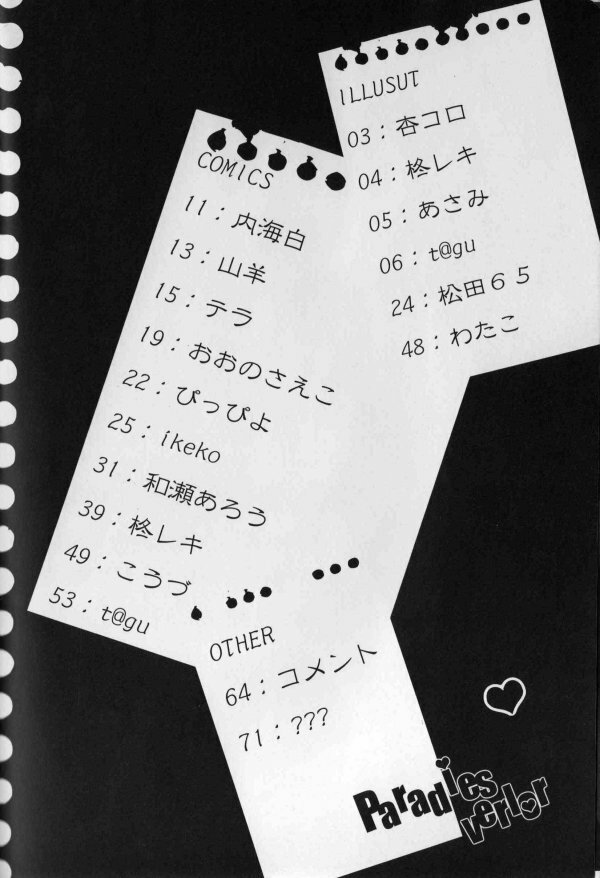 ILLUSUT
03：杏コロ
04：柊レキ
05：あさみ
06：t@gu
24：松田６５
48：わたこ
COMICS
11：内海白
13：山羊
15：テラ
19：おおのさえこ
22：ぴっぴよ
25：ikeko
31：和瀬あろう
39：柊レキ
49：こうづ
53：t@gu
OTHER
64：コメント
71：???
Paradies
verlor